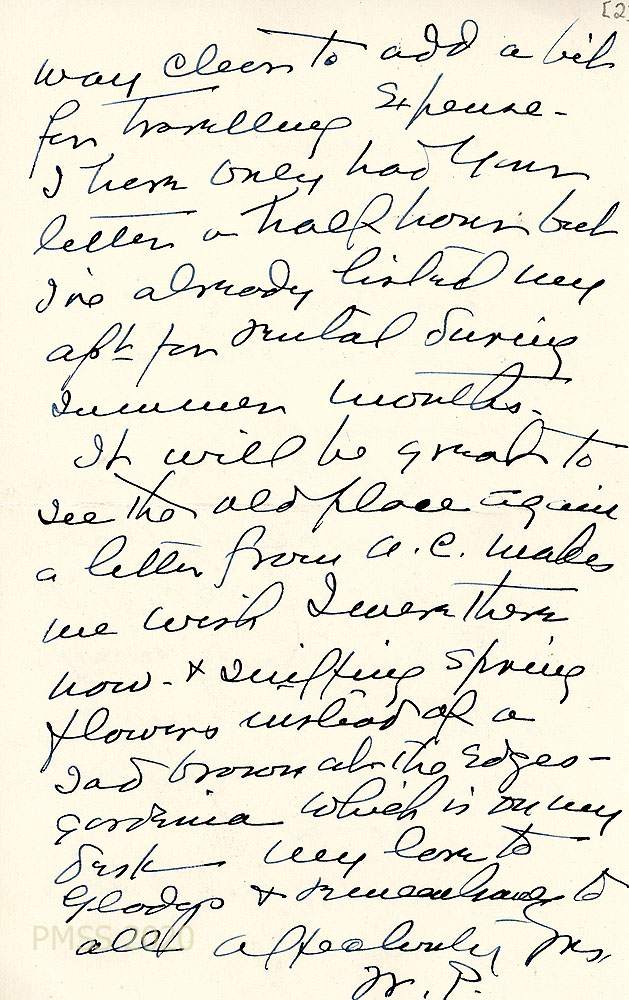 [2]
way clear to add a bit
for travelling expense -
I have only had your
letter a half hour but
I've already listed my
apt for rental during
summer months.
It will be great to
see the old place again
a letter from A.C. makes
me wish I were there
now - & sniffing spring
flowers instead of a
sad brown at the edges -
gardenia which is on my
desk - my love to
Gladys & remembrances to
all affectionately yrs.
W.P.
PMSS 2020